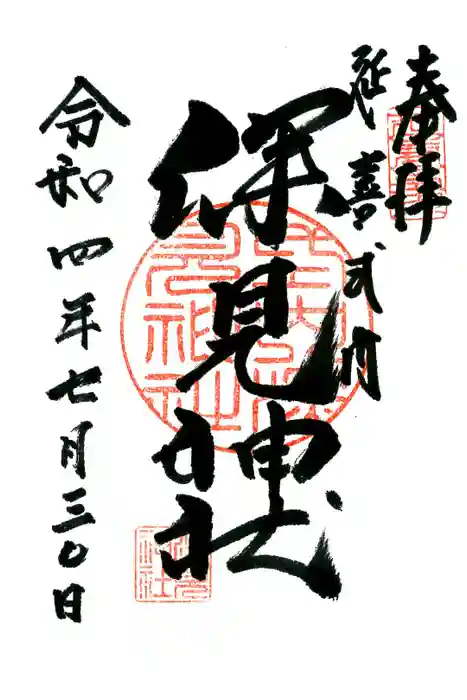 奉拝
延喜式内
深見神社
令和四年七月三〇日